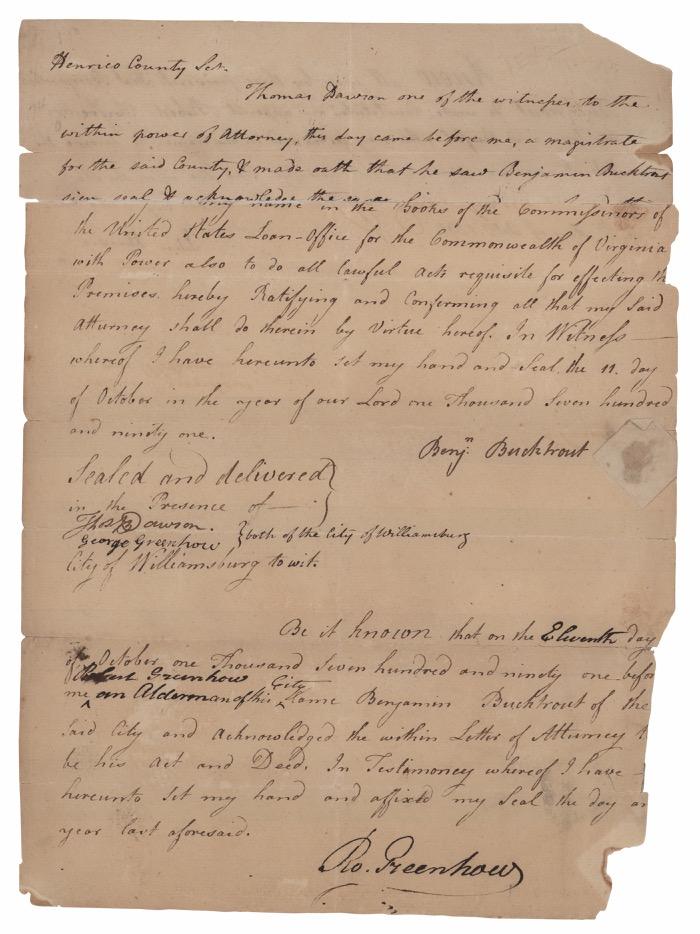 Henrico County Sct.
Thomas Dawson one of the witnesses to the
within power of Attorney, this day came before me, a magistrate
for the said County, & made oath that he saw Benjamin Bucktrout
sign seal, & acknowledge the
my name in the Books of the Commissioners of
the United States Loan-Office for the Commonwealth of Virginia
with Power also to do all lawful acts requisite for effecting th
Premises. hereby Ratifying and Confirming all that my Said
Attorney shall do therein by Virtue hereof. In Witness
whereof I have hereunto set my hand and Seal. the 11. day
of October in the year of our Lord one Thousand Seven hundred
and ninety one.
Benjn. Bucktrout
Sealed and delivered }
in the Presence of
Thos. Dawson.
George Greenhow } both of the City of Williamsburg
City of Williamsburg to wit.
Be it known that on the Eleventh day
of October one Thousand Seven hundred and ninety one befor
Robert Greenhow
City
me ^ an Alderman of this ^ Came Benjamin Bucktrout of the
Said City and Acknowledged the within Letter of Attorney t
be his Act and Deed. In Testimoney whereof I have
hereunto set my hand and affixed my Seal the day an
year last aforesaid.
Ro. Greenhow